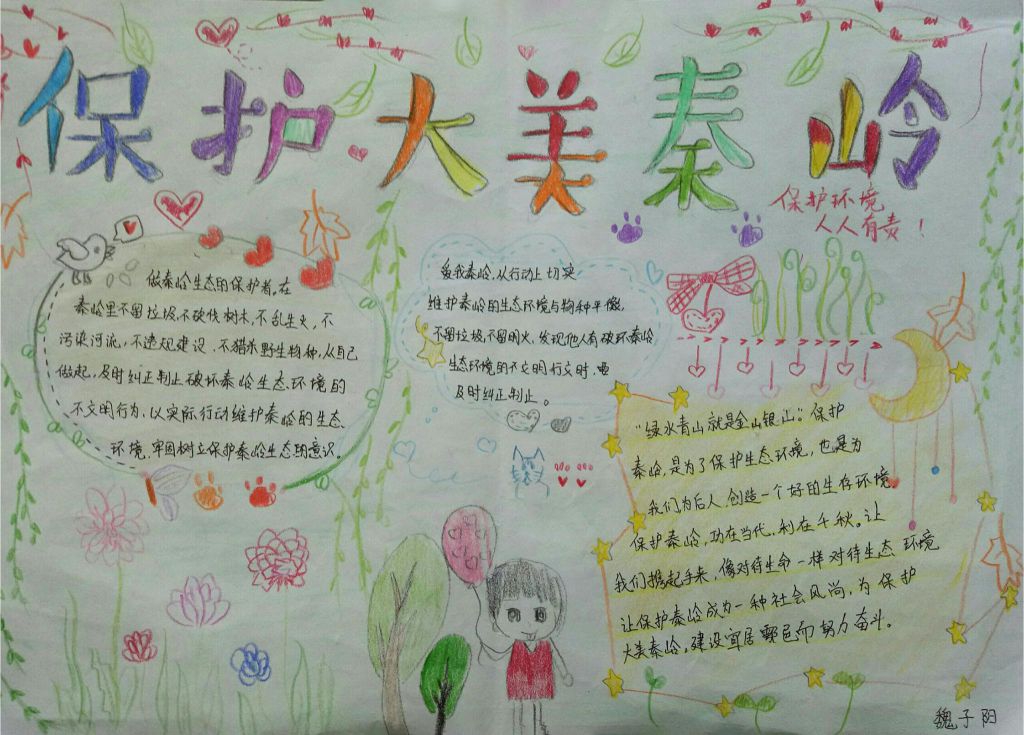 保护大美秦岭
保护环境
人人有责！
做秦岭生态的保护者。在
秦岭里不留垃圾、不砍伐树木、不乱生火，不
污染河流，不违规建设、不猎杀野生物种，从自己
做起，及时纠正制止破坏秦岭生态环境的
不文明行为。以实际行动维护秦岭的生态
环境，牢固树立保护秦岭生态的意识。
爱我秦岭，从行动上切实
维护秦岭的生态环境与物种平衡，
不留垃圾，不留明火，发现他人有破坏秦岭
生态环境的不文明行文时，要
及时纠正制止。
“绿水青山就是金山银山”。保护
秦岭，是为了保护生态环境，也是为
我们为后人创造一个好的生存环境
保护秦岭，功在当代，利在千秋。让
我们携起手来，像对待生命一样对待生态环境
让保护秦岭成为一种社会风尚，为保护
大美秦岭，建设宜居鄠邑而努力奋斗。
魏子阳